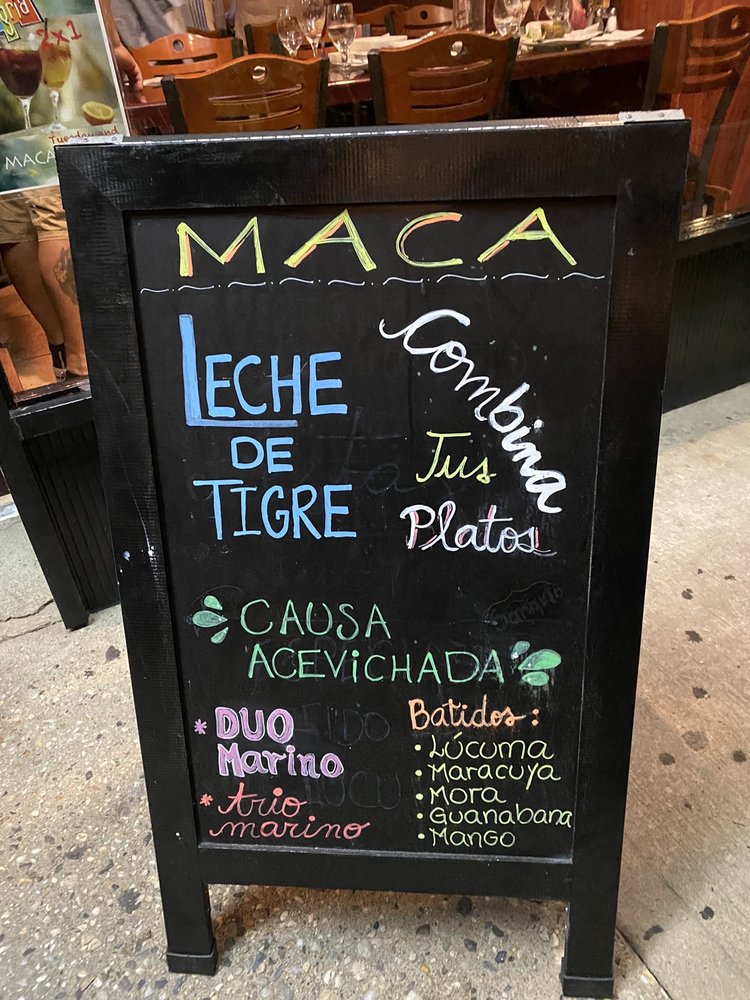 2x1
Tuesday and
MACA
MACA
LECHE
DE
TIGRE
Combina
Tus
Platos
CAUSA
ACEViCHADA
* DUO
Marino
* trio
marino
Batidos:
• LÚCUMA
• MARACUYA
• MORA
• GUANABANA
• MANGO